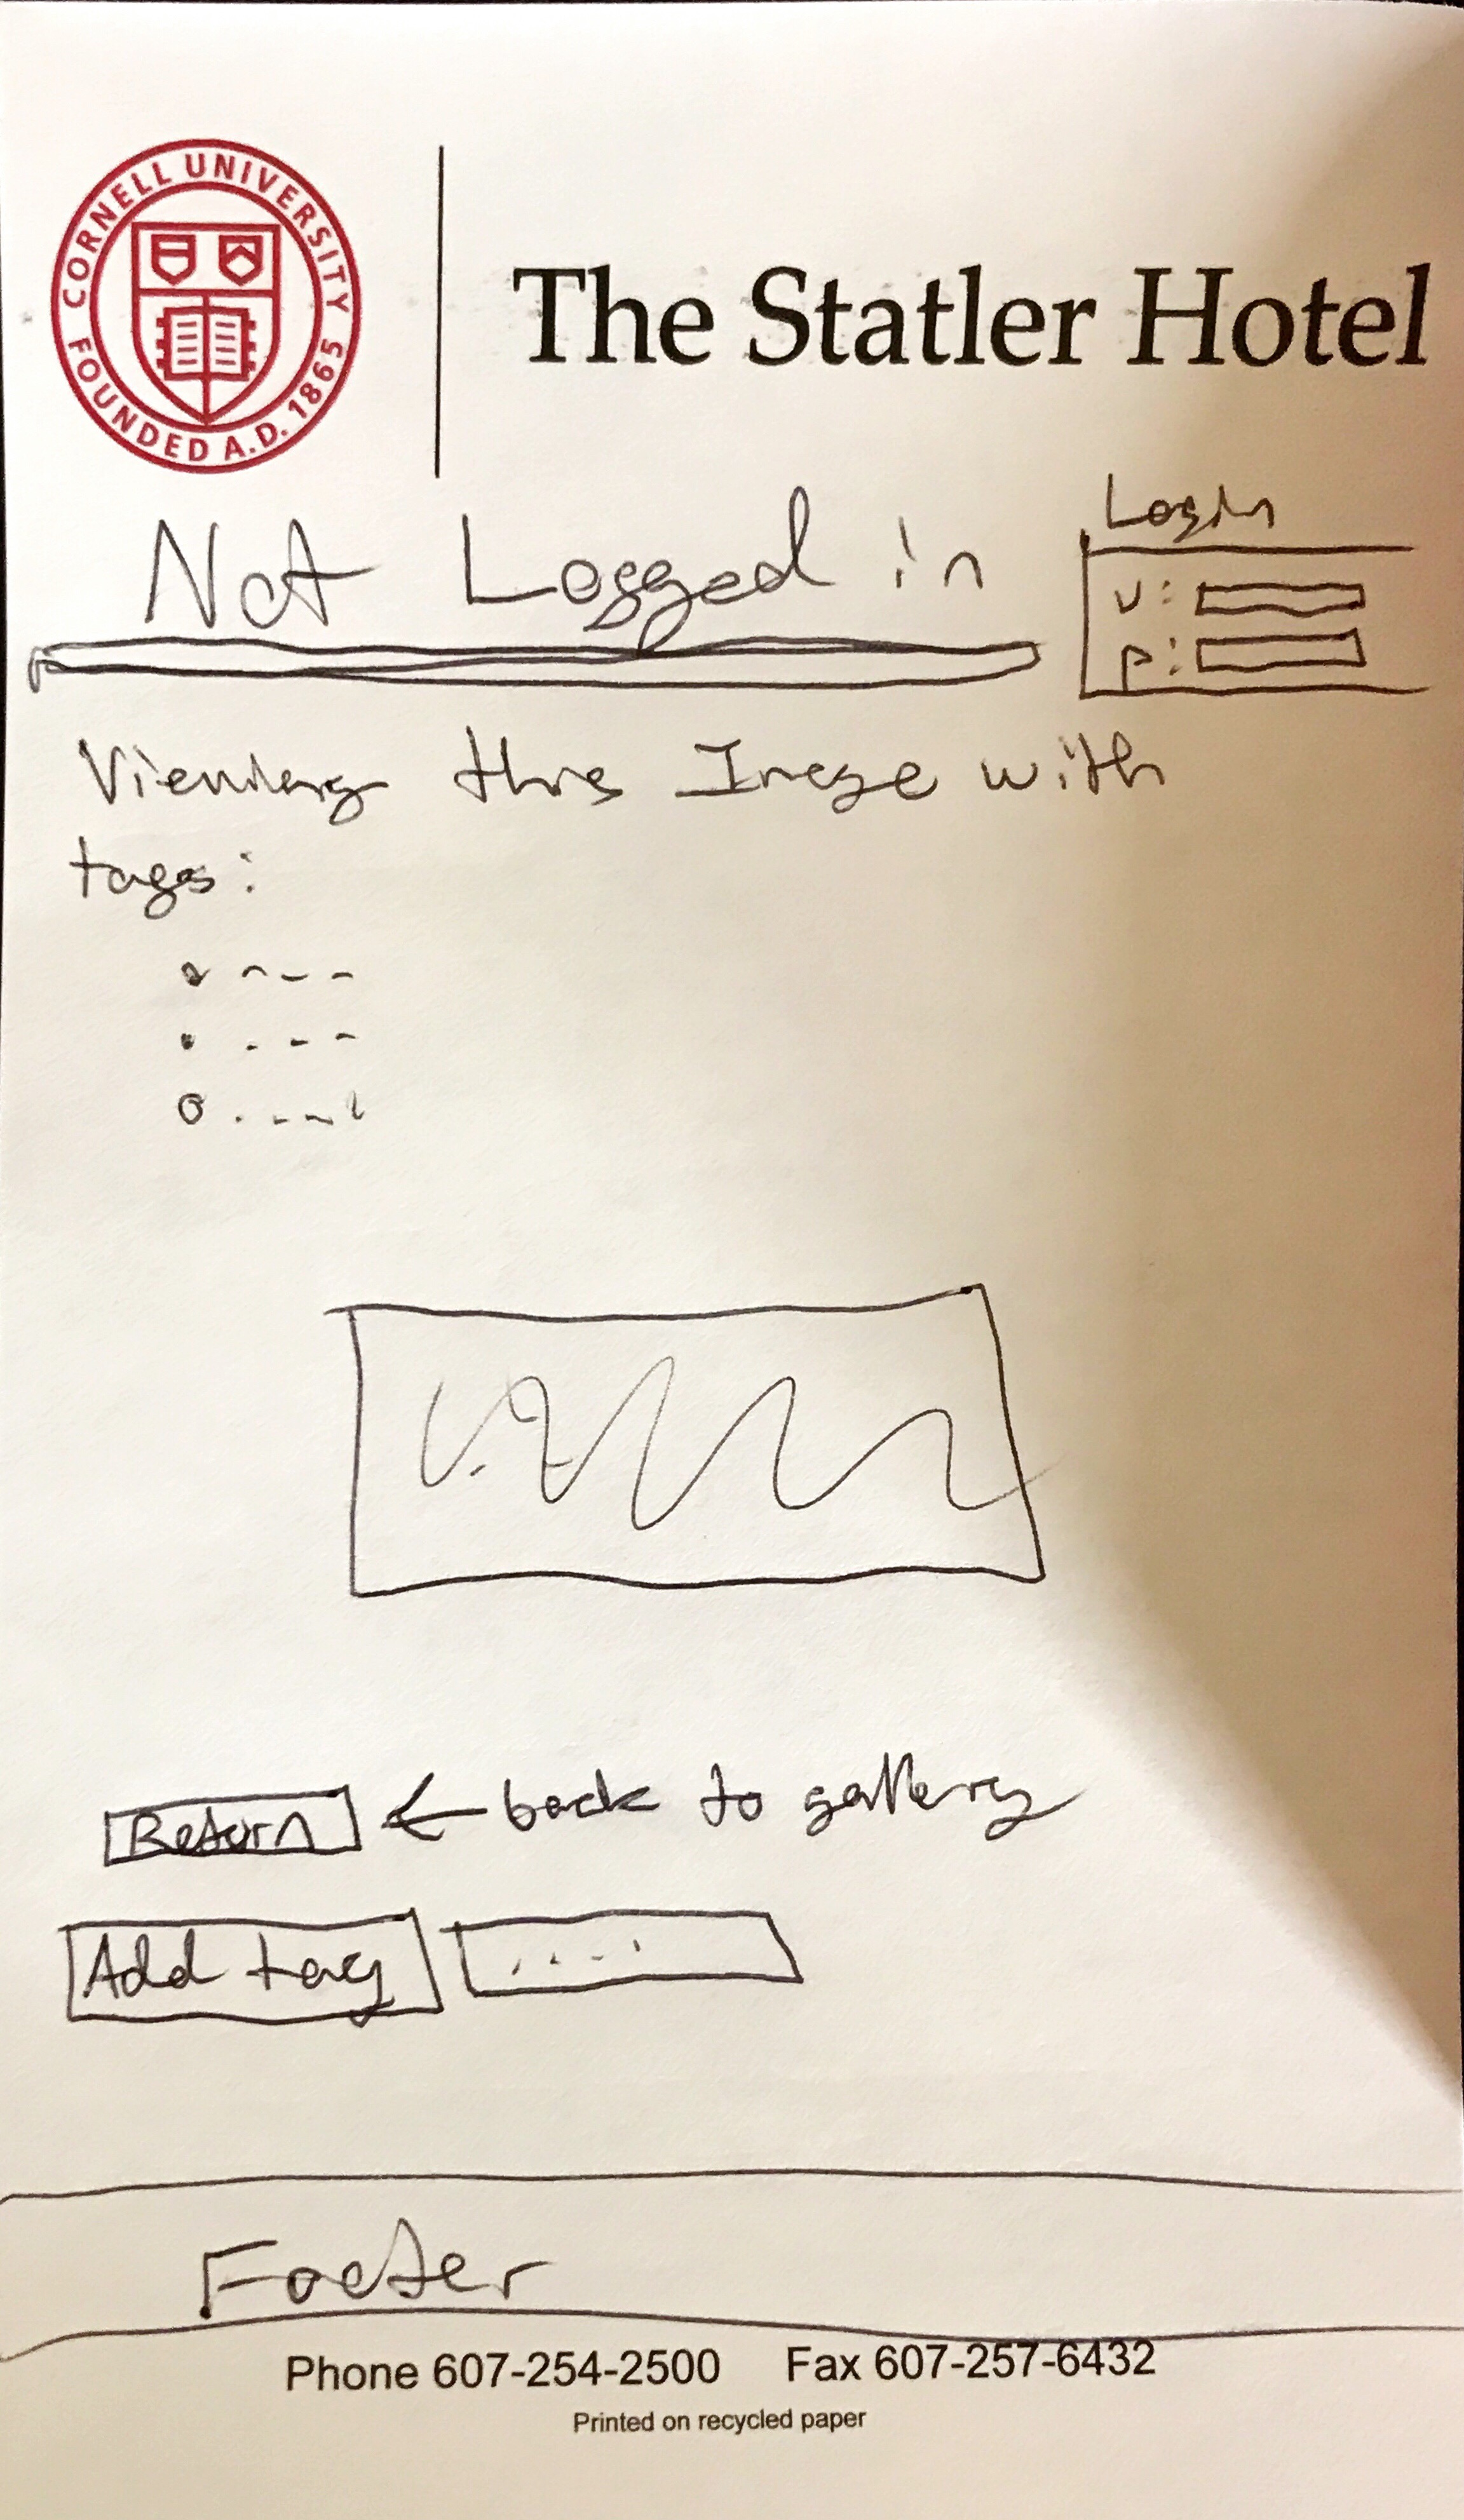 CORNELL UNIVERSITY
FOUNDED A.D. 1865
The Statler Hotel
Login
Not Logged in
U:
P:
Viewing this Image with
tags:
Return ← back to gallery
Add tag
Footer
Phone 607-254-2500 Fax 607-257-6432
Printed on recycled paper